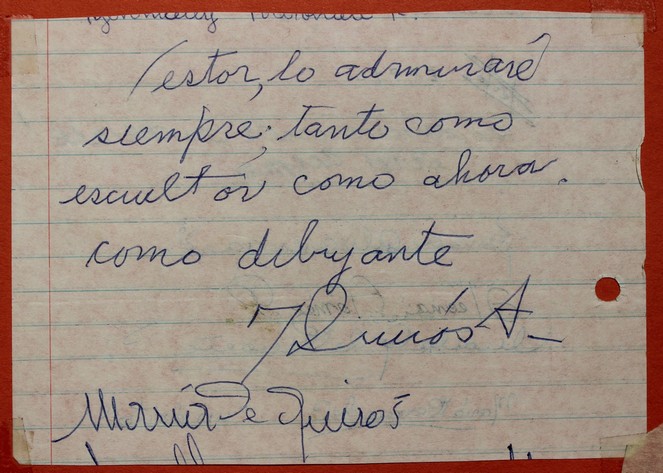 Néstor, lo admiraré
siempre; tanto como
escultor como ahora
como dibujante
Quirós A.
María de Quirós